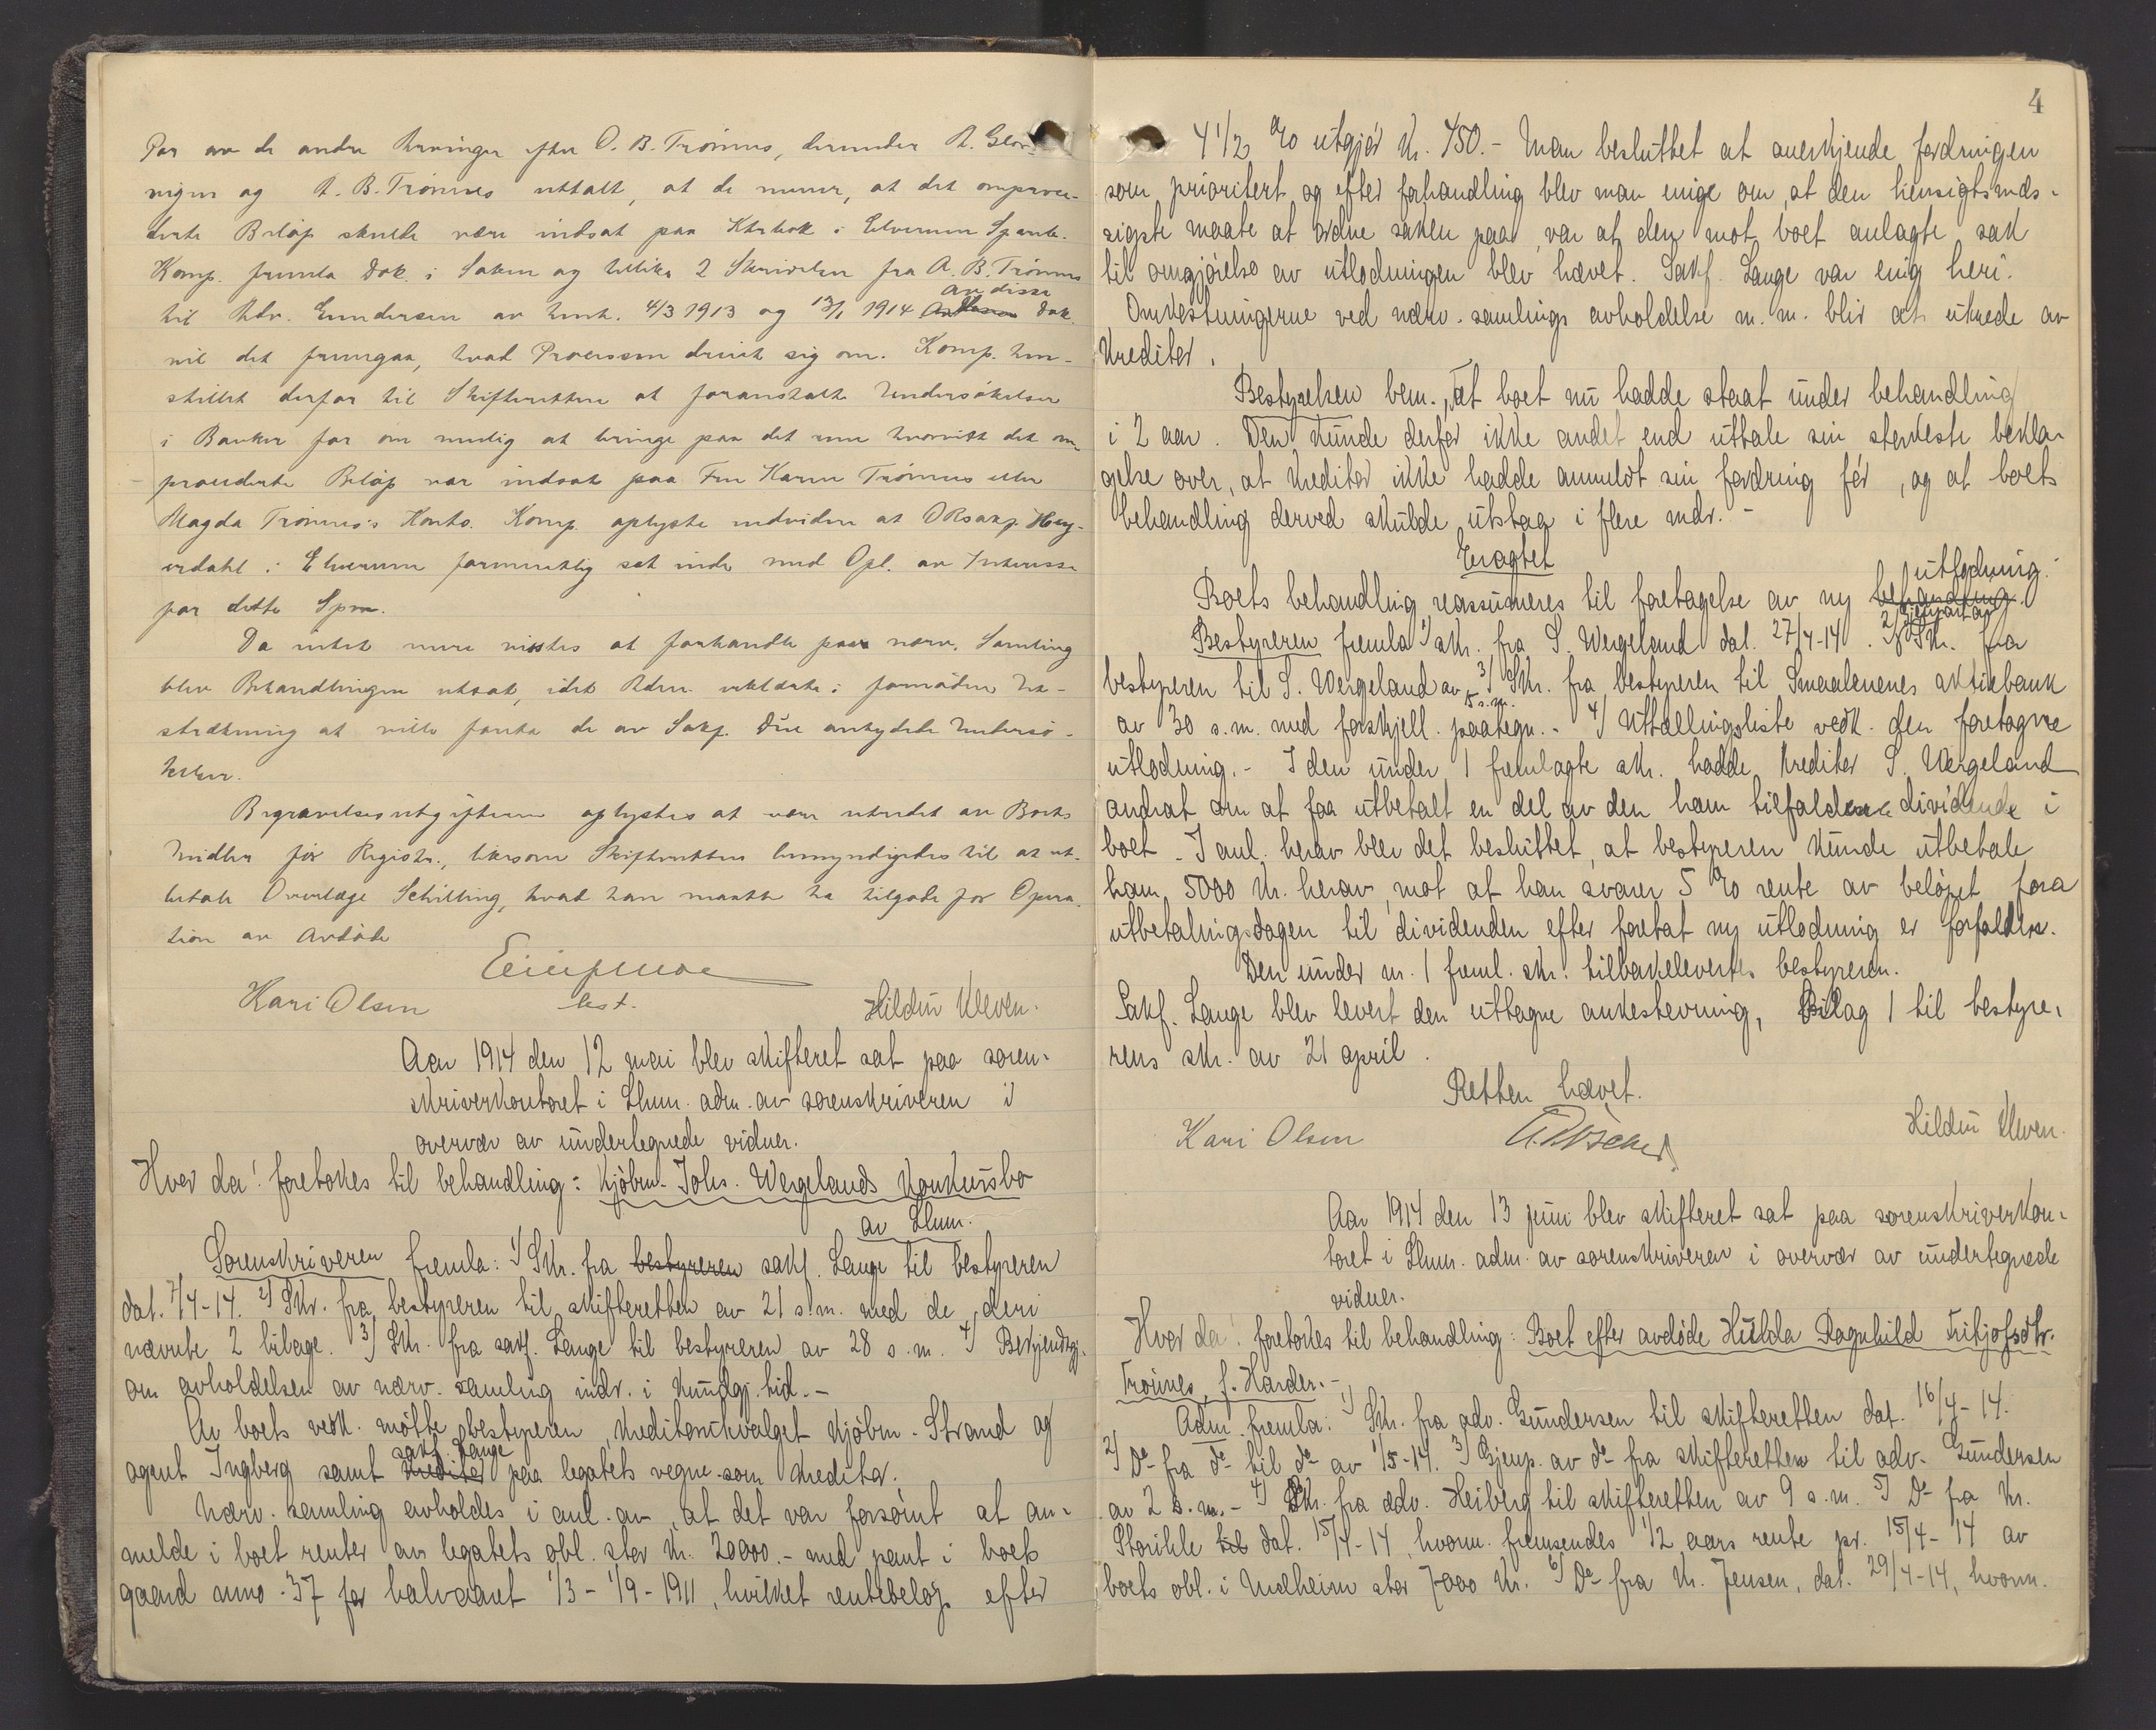 Par av de andre Arvinger efter O. B. Trønnes, derunder A. Glør-
vigen og A. B. Trønnes uttalt, at de mener, at det omproce-
derte Beløp skulde være indsat paa Ktrbok i Elverum Spareb.
Komp. fremla Dok. i Saken og tillike 2 Skrivelser fra A. B. Trønnes
til Adv. Gundersen av hvh. 4/3 1913 og 13/1 1914 Av disse Dok.
vil det fremgaa, hvad Processen dreiet sig om. Komp. hen-
stillet derfor til Skifteretten at foranstalte Undersøkelser
i Banker for om mulig at bringe paa det rene hvorvidt det om-
procederte Beløp var indsat paa Fru Karen Trønnes eller
Magda Trønnes's Konto. Komp. oplyste endvidere at ORsakf. Hey-
erdahl i Elverum formentlig sat inde med Opl. av Interesse
for dette Spm.
Da intet mere vistes at forhandle paa nærv. Samling
blev Behandlingen utsat, idet Adm. erklærte i fornøden Ut-
strækning at ville foreta de av Sakf. Due antydede Undersø-
kelser.
Begravelsesutgifterne oplystes at være utredet av Boets
Midler før Registr., likesom Skifteretten bemyndigedes til at ut-
betale Overlæge Schilling, hvad han maatte ha tilgode for Opera-
tion av Avdøde
Kari Olsen
bst.
Hildur Kleven.
Aar 1914 den 12 mai blev skifteret sat paa soren-
skriverkontoret i Lhmr. adm. av sorenskriveren i
overvær av undertegnede vidner.
Hvor da! foretokes til behandling: Kjøbm. Johs. Wergelands Konkursbo
av Lhmr.
Sorenskriveren fremla: 1) Skr. fra bestyreren sakf. Lange til bestyreren
dat. 7/4-14. 2) Skr. fra bestyreren til skifteretten av 21 s.m. med de deri
nævnte 2 bilage. 3) Skr. fra sakf. Lange til bestyreren av 28 s.m. 4) Bekjendtgj.
om avholdelsen av nærv. samling indr. i Kundgj. tid.-
Av boets vedk. møtte bestyreren, kreditorutvalget kjøbm. Strand og
agent Ingberg samt kreditor sakf. Lange paa legatets vegne som kreditor.
Nærv. samling avholdes i anl. av, at det var forsømt at an-
melde i boet renter av legatets obl. stor kr. 20000.- med pant i boets
gaard mno 37 for halvaaret 1/3-1/9-1911, hvilket rentebeløp efter
4
4 1/2 % utgjør kr. 450.- Man besluttet at anerkjende fordringen
som prioritert og efter forhandling blev man enige om, at den hensigtsmæs-
sigste maate at ordne saken paa, var at den mot boet anlagte sak
til omgjørelse av utlodningen blev hævet. Sakf. Lange var enig heri.
Omkostningerne ved nærv. samlings avholdelse m. m. blir at utrede av
kreditor.
Bestyrelsen bem., at boet nu hadde staat under behandling
i 2 aar. Den kunde derfor ikke andet end uttale sin sterkeste bekla-
gelse over, at kreditor ikke hadde anmeldt sin fordring før, og at boets
behandling derved skulde utstaa i flere mdr.-
Eragtet
Boets behandling reassumeres til foretagelse av ny behandling utlodning.
Bestyreren fremla 1) skr. fra S. Wergeland dat. 27/4-14. 2) Gjenpart av Skr. fra
bestyreren til S. Wergeland av 5 s.m. 3) Skr. fra bestyreren til Smaalenenes aktiebank
av 30 s.m. med forskjell. paategn.- 4) Uttællingsliste vedk. den foretagne
utlodning.- I den under 1 fremlagte skr. hadde kreditor S. Wergeland
andrat om at faa utbetalt en del av den ham tilfaldende dividende i
boet. I anl. herav blev det besluttet, at bestyreren kunde utbetale
ham 5000 kr. herav, mot at han svarer 5 % rente av beløpet fora
utbetalingsdagen til dividenden efter foretat ny utlodning er forfalden.
Den under nr. 1 freml. skr. tilbakelevertes bestyreren.
Sakf. Lange blev levert den uttagne ankestevning, Bilag 1 til bestyre-
rens skr. av 21 april.
Retten hævet.
Kari Olsen
Hildur Kleven.
Aar 1914 den 13 juni blev skifteret sat paa sorenskriverkon-
toret i Lhmr. adm. av sorenskriveren i overvær av undertegnede
vidner.
Hvor da! foretokes til behandling: Boet efter avdøde Hulda Ragnhild Fritjofsdtr.
Trønnes, f. Harder.-
Adm. fremla: 1) Skr. fra adv. Gundersen til skifteretten dat. 16/4-14.
2) Do fra do til do av 1/5-14. 3) Gjenp. av do fra skifteretten til adv. Gundersen
av 2 s.m.- 4) Skr. fra adv. Heiberg til skifteretten av 9 s.m. 5) Do fra Kr.
Storihle til dat. 15/4-14, hvorm. fremsendes 1/2 aars rente pr. 15/4-14 av
boets obl. i Mælheim stor 7000 kr. 6) Do fra Kr. Jensen, dat. 29/4-14, hvorm.